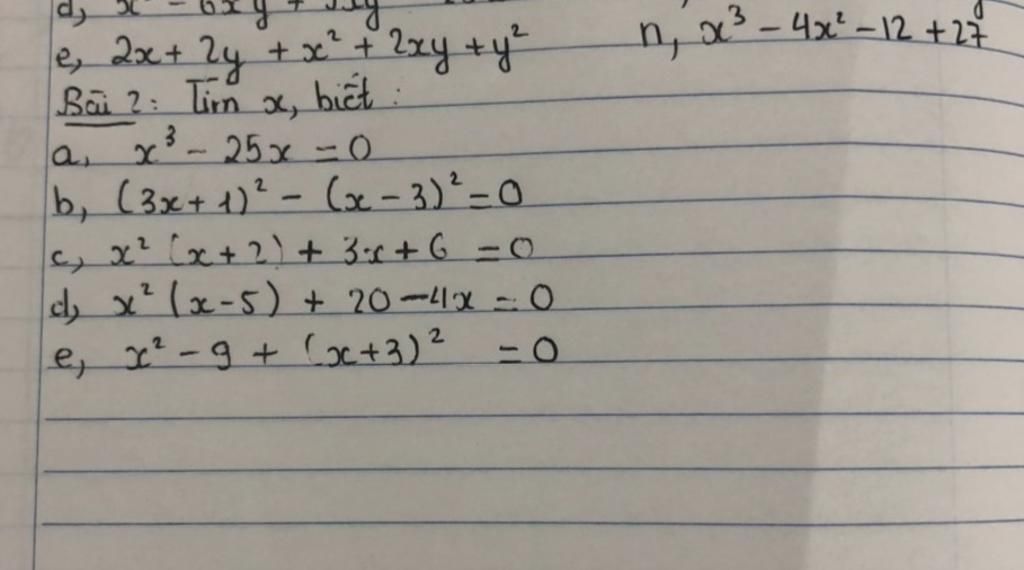 d, x² - 6xy +
e, 2x + 2y + x² + 2xy + y²
n, x³ - 4x² - 12 + 27
Bài 2: Tìm x, biết :
a, x³ - 25x = 0
b, (3x + 1)² - (x - 3)² = 0
c, x² (x + 2) + 3x + 6 = 0
d, x² (x - 5) + 20 - 4x = 0
e, x² - 9 + (x + 3)² = 0